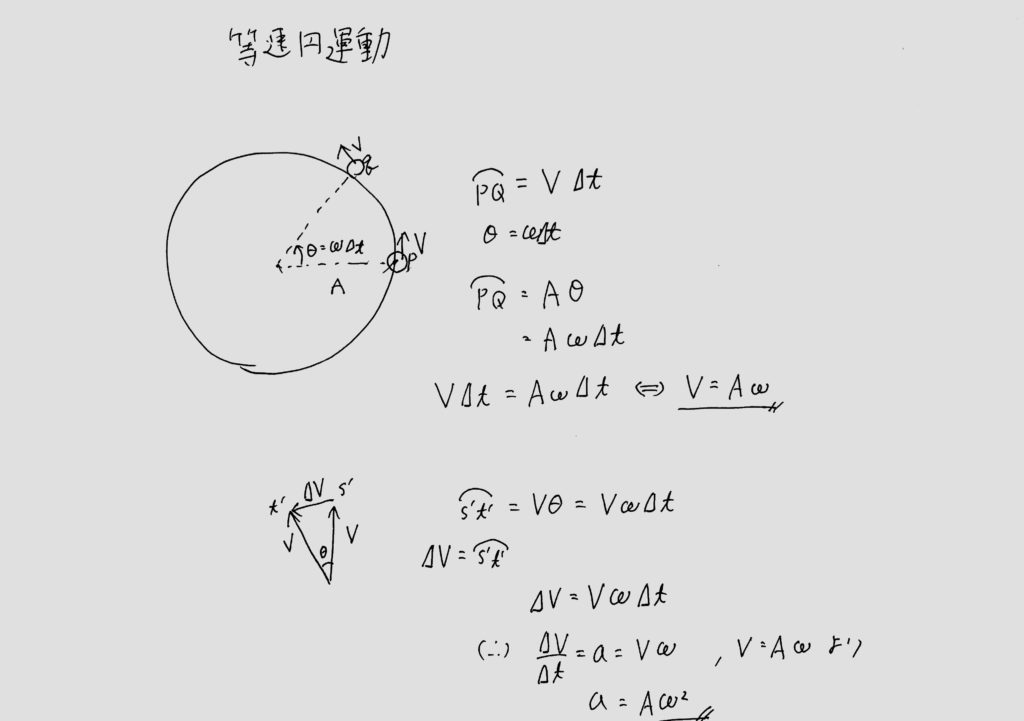 等速円運動
V
Q
θ=ωΔt
V
P
A
P͡Q = V Δt
θ = ωΔt
P͡Q = A θ
= A ω Δt
V Δt = A ω Δt ⇔ V = A ω
t' ΔV s'
V θ V
s͡'t' = Vθ = V ω Δt
ΔV = s͡'t'
ΔV = V ω Δt
(∴) ΔV/Δt = a = V ω , V = A ω より
a = A ω²